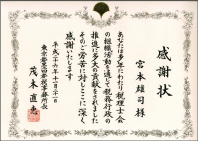 感謝状
宮本雄司様
あなたは多年にわたり税理士会
の組織活動を通じて税務行政の
推進に多大の貢献をされました
そのご労苦に対しここに深く
感謝いたします
平成二十六年十一月十一日
茂木直忠